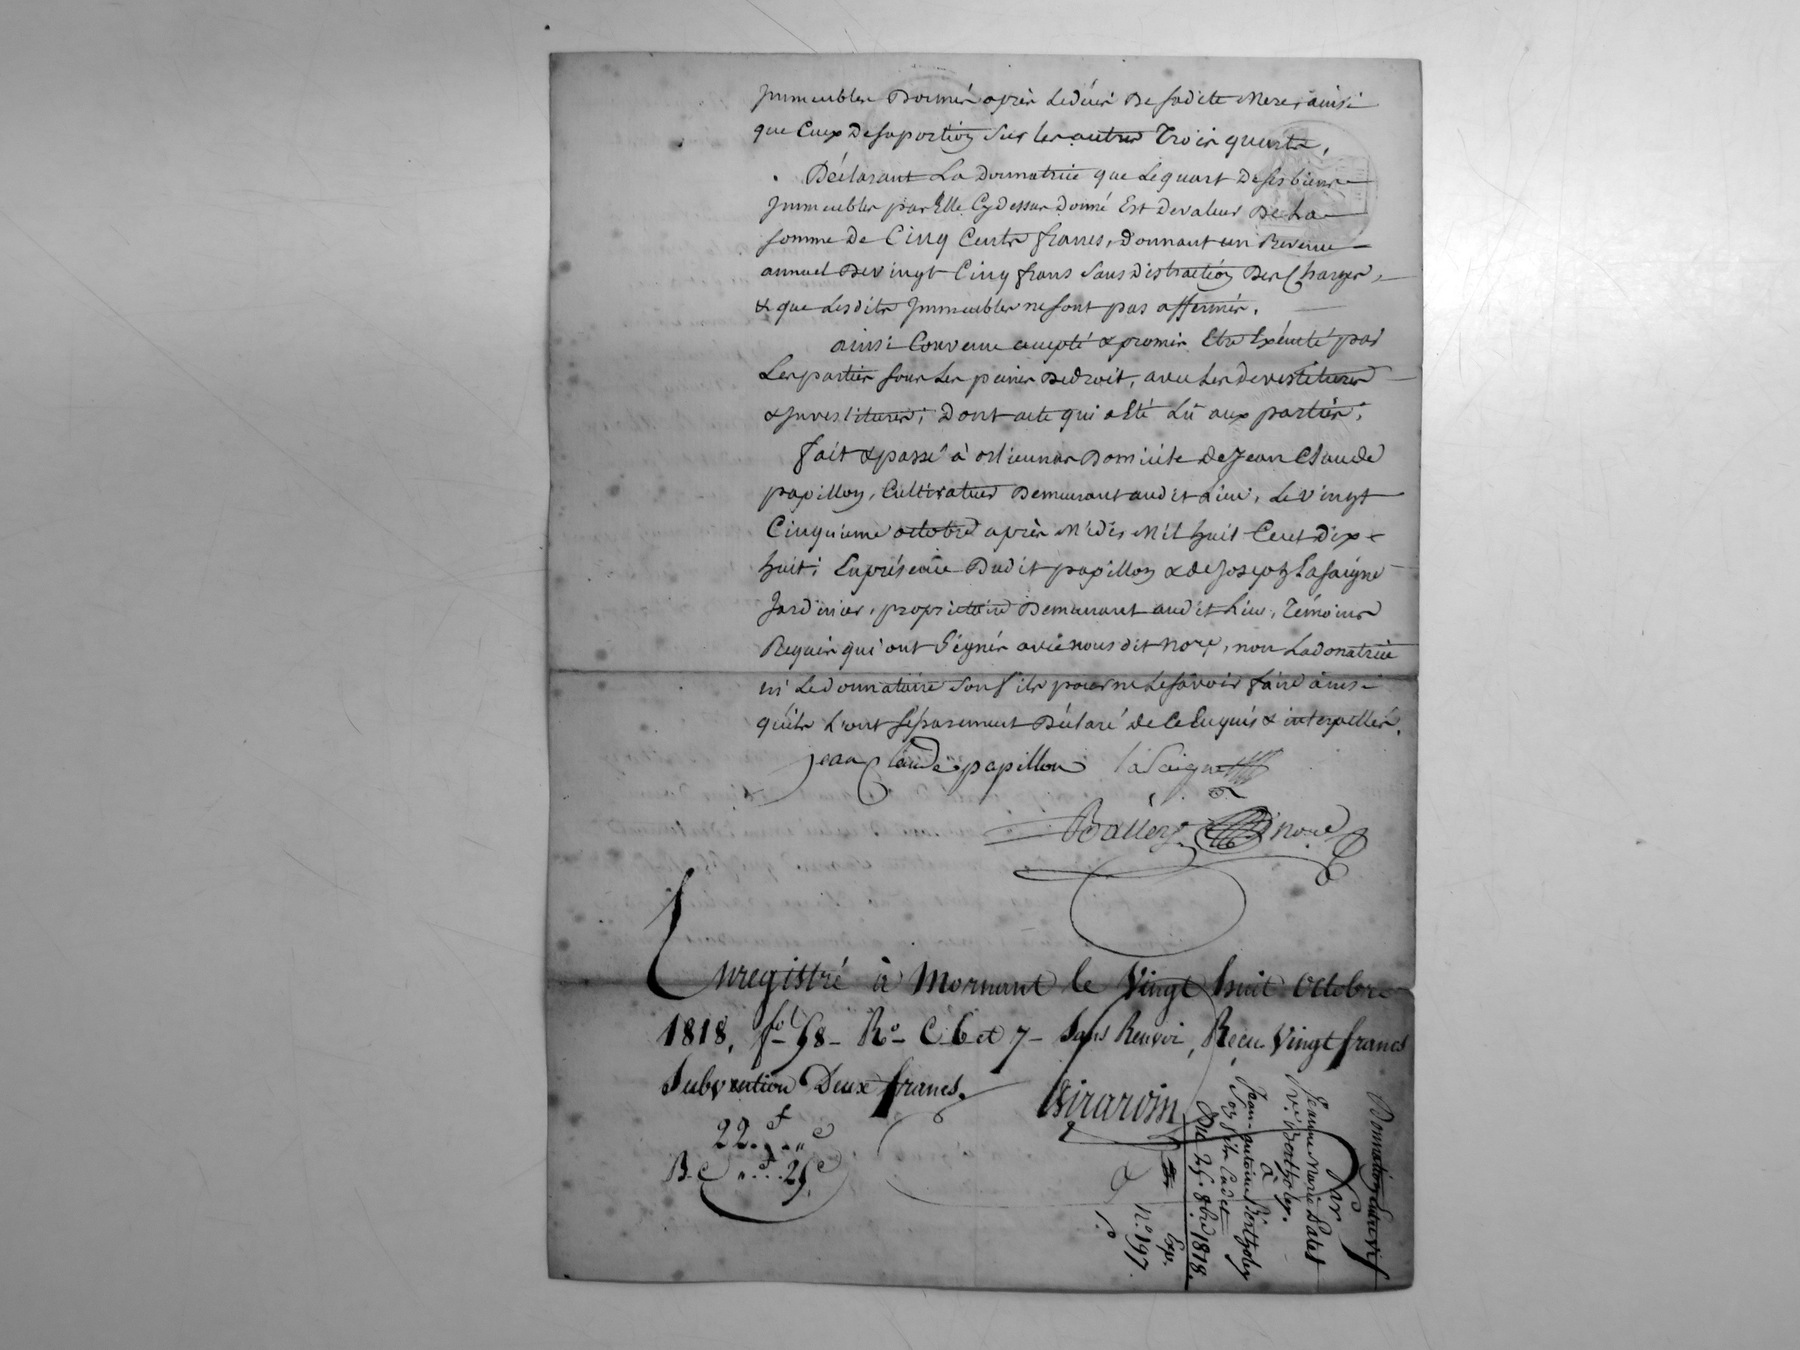 Immeubles Donnés après le décès De sadite Mere, ainsi
que Ceux De sa portion Sur les autres Trois quarts.
Déclarant La Donnatrice que Le quart De ses biens
Immeubles par Elle Cy dessus Donné Est De valeur De La
somme De Cinq Cents francs, Donnant un Revenu
annuel De vingt Cinq francs Sans distraction Des Charges,
& que Lesdits Immeubles ne sont pas affermés.
ainsi Convenu accepté & promis Etre Exécuté par
Les parties sous Les peines De droit, avec Les devestitures
& Investitures; Dont acte qui a Eté Lû aux parties;
fait & passé à orlienas Domicile de Jean Claude
papillon, Cultivateur Demeurant audit Lieu, Le vingt
Cinquieme octobre après Midi Mil huit Cent Dix
huit; En présence Dudit papillon & de Joseph Lasaigne
Jardinier, propriétaire Demeurant audit Lieu, Témoins
Requis qui ont Signés avec nous dit Nore, non La donatrice
ni Le donnataire Son fils pour ne Le savoir faire ainsi
qu'ils L'ont Séparement Déclaré de Ce Enquis & interpellés.
jean Claude papillon lasaigne
Nore
Enregistré à Mornant le Vingt huit Octobre
1818, fol 58 Ro C 6 et 7 Sans Renvoi, Recu Vingt francs
Subvention Deux francs.
Girardin
22.f "c
B.e "f 25c
Donnation Entre vifs
Par
Jeanne Marie Palet
Ve. Bertholey.
à
Jean-antoine Bertholey
Son fils Cadet
Du 25. 8bre 1818.
Exp.
No. 197.